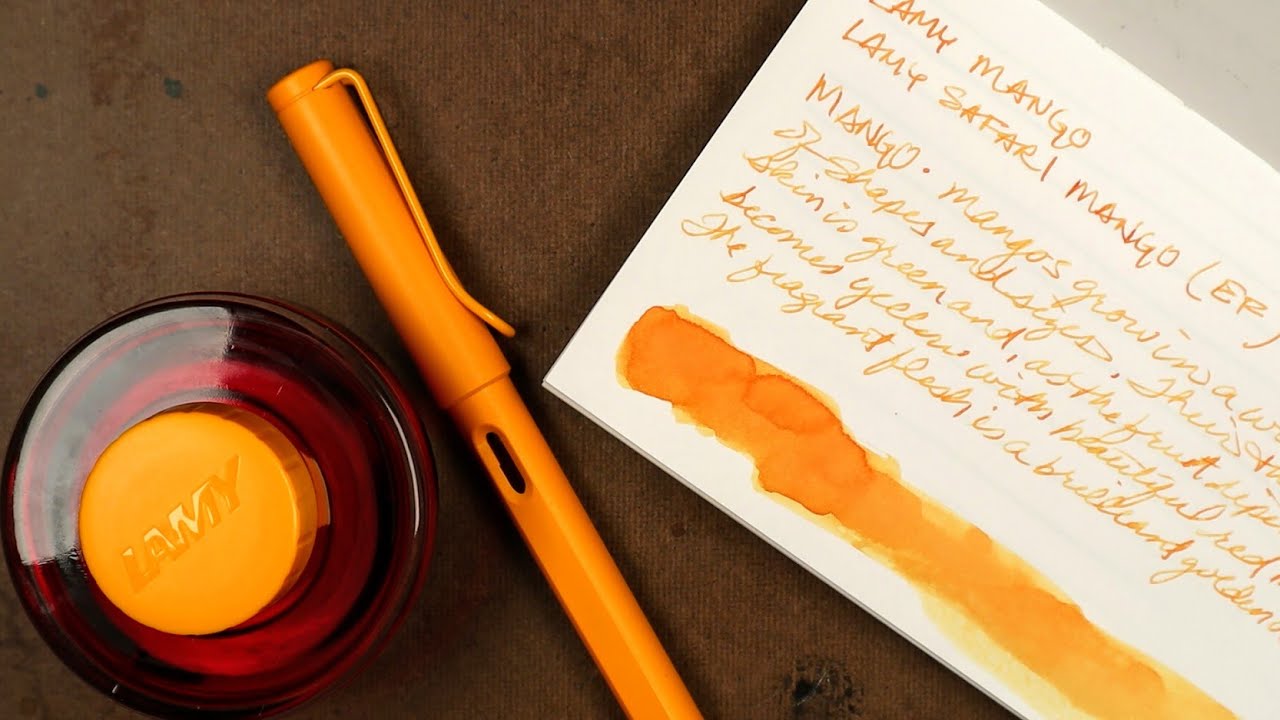 LAMY
LAMY MANGO
LAMY SAFARI MANGO (EF)
MANGO. Mangos grow in a
shapes and sizes. Their
skin is green and, as the fruit
becomes yellow, with beautiful red
The fragrant flesh is a brilliant golden